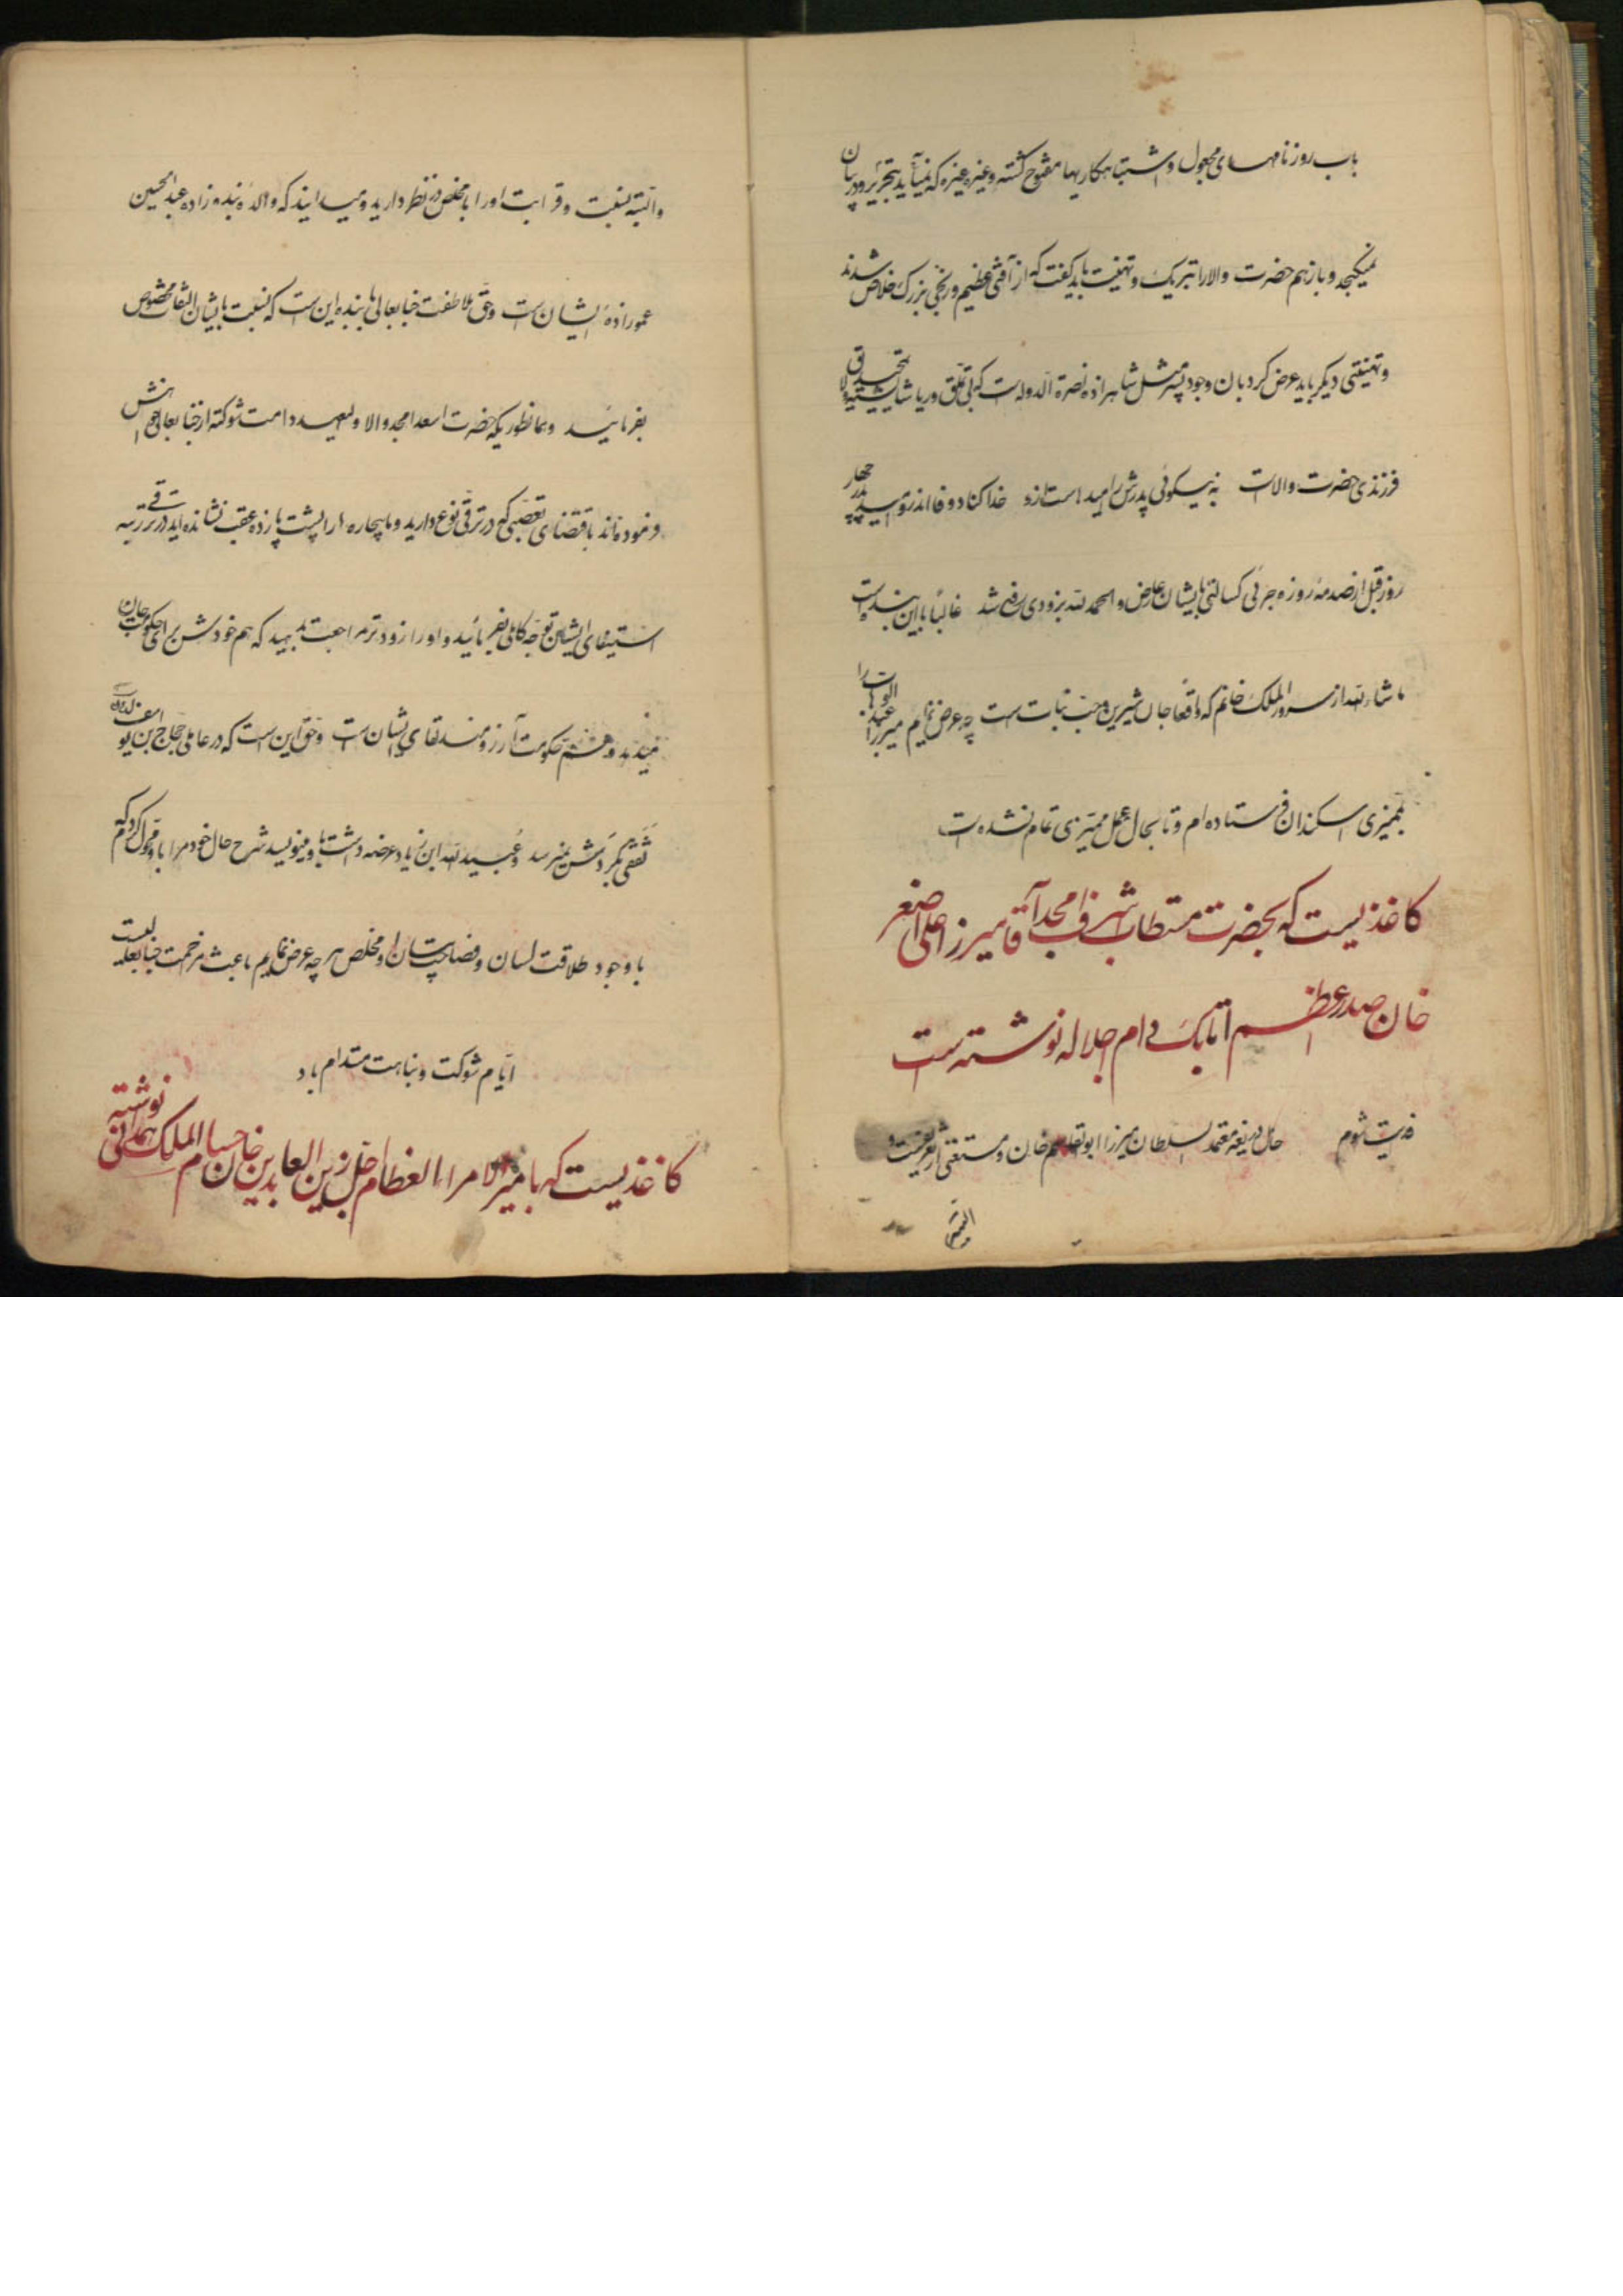 باب روزنامهای مجعول و اشتباهکاریها مفتوح گشته و غیره و غیره که نمیآید بتحریر و در بیان
نمیگنجد و باز هم حضرت والا را تبریک و تهنیت باید گفت که از آفتی عظیم و رنجی بزرگ خلاص شدند
و تهنیتی دیگر باید عرض کرد بآن وجود پسر مثل شاهزاده نصرة الدوله است که بی تملق و ریا شایسته
فرزندی حضرت والاست به نیکوئی پدرش امیدهاست ازو خدا کناد وفا اندرو امید پدر چهار
روز قبل از صدمه روزه جزئی کسالتی بایشان عارض و الحمد لله بزودی رفع شد غالباً با این بنده است
ماشاء الله از سرور الملک خانم که واقعاً جان شیرین و حب نبات است چه عرض نمایم میرزا عبد الوهاب را
بممیزی اسکندان فرستاده ام و تا بحال عمل ممیزی تمام نشده است
کاغذیست که بحضرت مستطاب اشرف امجد آقا میرزا علی اصغر
خان صدر اعظم اتابک دام اجلاله نوشته است
فدایت شوم حامل ذریعه معتمد السلطان میرزا ابوالقاسم خان و مستغنی از تعریف است
البته
و البته نسبت و قرابت او را با مخلص در نظر دارید و میدانید که والدهٔ بنده زاده عبدالحسین
عموزادهٔ ایشان است و حق ملاطفت جنابعالی با بنده این است که نسبت بایشان التفات مخصوص
بفرمائید و بهمانطوریکه حضرت اسعد امجد والا ولیعهد دامت شوکته از جنابعالی خواهش
فرموده اند باقتضای تعصبی که در ترقی نوع دارید و ما بیچاره ها را پشت پا زده عقب نشانده اید در ترقی رتبه
استیفای ایشان توجه کاملی بفرمائید و او را زودتر مراجعت بدهید که هم خودش برای حکومت جان
میدهد و هم حکومت آرزومند لقای ایشان است و حق این است که در عاملی حجاج بن یوسف
ثقفی بگردش نمیرسد و عبید الله ابن زیاد عرضه داشت باو مینویسد شرح حال خود مرا باو محول کردم که
با وجود طلاقت لسان و فصاحت بیان او مخلص هر چه عرض نمایم باعث مزاحمت جنابعالیست
ایام شوکت و نباهت مستدام باد
کاغذیست که با میر الامراء العظام اجل زین العابدین خان حسام الملک همدانی نوشته